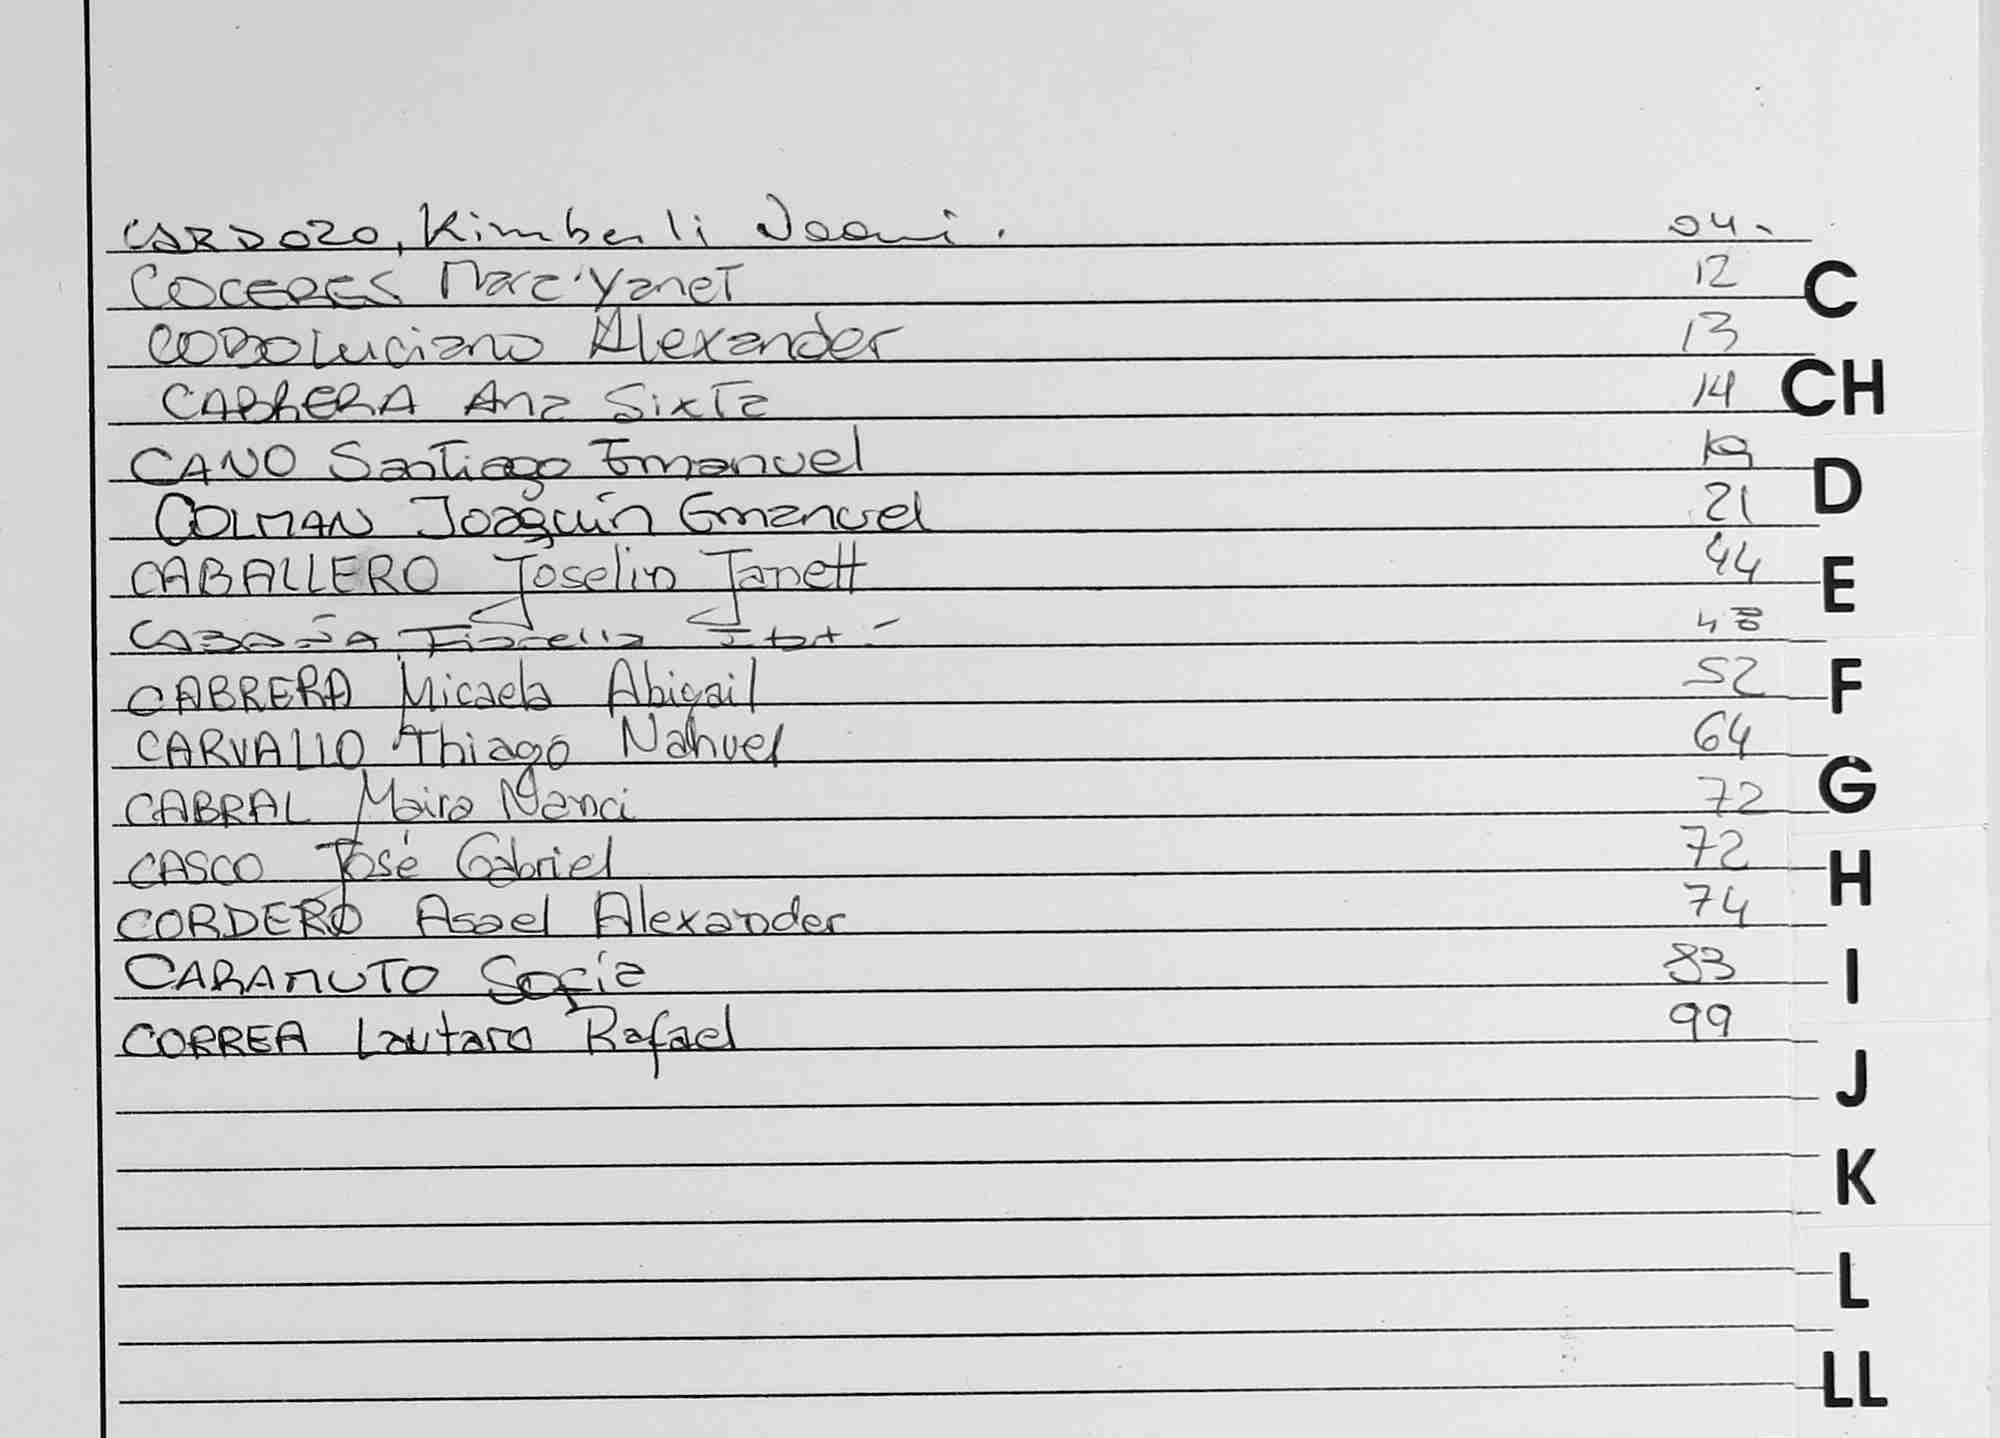 CARDOZO, Kimberli 04.
COCERES Yanet 12
Luciano Alexander 13
CABRERA Ana Sixta 14
CANO Santiago Emanuel 19
COLMAN Joaquín Emanuel 21
CABALLERO Joselin Janett 44
Fiorella 48
CABRERA Micaela Abigail 52
CARVALLO Thiago Nahuel 64
CABRAL Maira Nanci 72
CASCO José Gabriel 72
CORDERO Asael Alexander 74
CARAMUTO Sofía 83
CORREA Lautaro Rafael 99
C
CH
D
E
F
G
H
I
J
K
L
LL